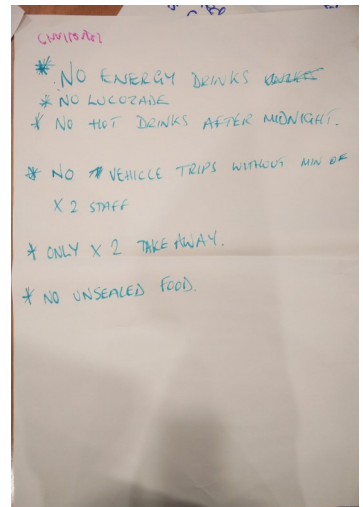 * NO ENERGY DRINKS
* NO LUCOZADE
* NO HOT DRINKS AFTER MIDNIGHT.
* NO VEHICLE TRIPS WITHOUT MIN OF
X 2 STAFF
* ONLY X 2 TAKE AWAY.
* NO UNSEALED FOOD.